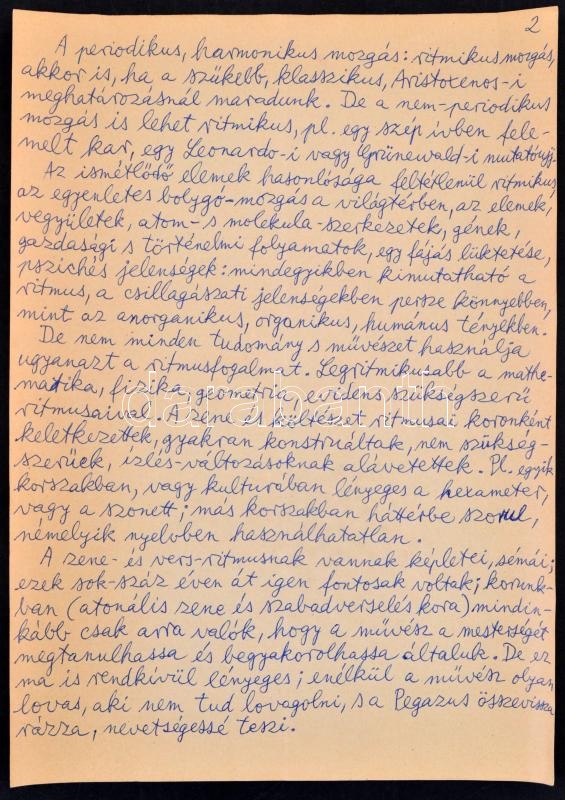 2
A periodikus, harmonikus mozgás: ritmikus mozgás,
akkor is, ha a szűkebb, klasszikus, Aristoxenos-i
meghatározásnál maradunk. De a nem-periodikus
mozgás is lehet ritmikus, pl. egy szép ívben fele-
melt kar, egy Leonardo-i vagy Grünewald-i mutatóujj.
Az ismétlődő elemek hasonlósága feltétlenül ritmikus,
az egyenletes bolygó-mozgás a világtérben, az elemek,
vegyületek, atom- s molekula-szerkezetek, gének,
gazdasági s történelmi folyamatok, egy fájás lüktetése,
pszichés jelenségek: mindegyikben kimutatható a
ritmus, a csillagászati jelenségekben persze könnyebben,
mint az anorganikus, organikus, humánus tényekben.
De nem minden tudomány s művészet használja
ugyanazt a ritmusfogalmat. Legritmikusabb a mathe-
matika, fizika, geometria, evidens szükségszerű
ritmusaival. A zene és költészet ritmusai koronként
keletkezettek, gyakran konstruáltak, nem szükség-
szerűek, ízlés-változásoknak alávetettek. Pl. egyik
korszakban, vagy kulturában lényeges a hexameter,
vagy a szonett; más korszakban háttérbe szorul,
némelyik nyelvben használhatatlan.
A zene- és vers-ritmusnak vannak képletei, sémái;
ezek sok-száz éven át igen fontosak voltak; korunk-
ban (atonális zene és szabadverselés kora) mindin-
kább csak arra valók, hogy a művész a mesterségét
megtanulhassa és begyakorolhassa általuk. De ez
ma is rendkívül lényeges; enélkül a művész olyan
lovas, aki nem tud lovagolni, s a Pegazus összevissza
rázza, nevetségessé teszi.
darabanth